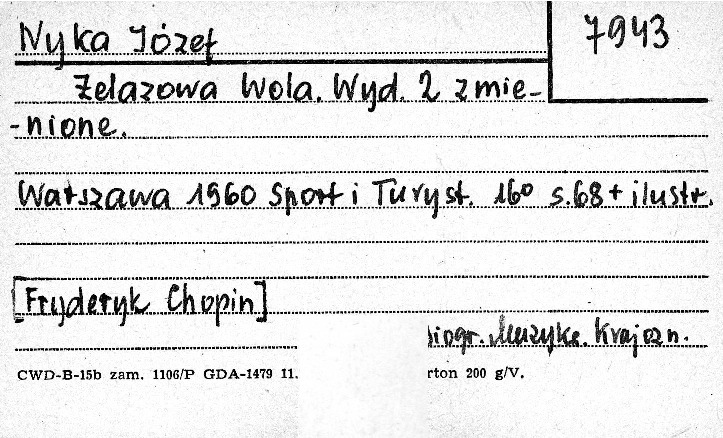 Nyka Józef
7943
Żelazowa Wola. Wyd. 2 zmie-
-nione.
Warszawa 1960 Sport i Turyst. 16° s.68 + ilustr.
[Fryderyk Chopin]
biogr. Muzyka. Krajozn.
CWD-B-15b zam. 1106/P GDA-1479 11.
rton 200 g/V.